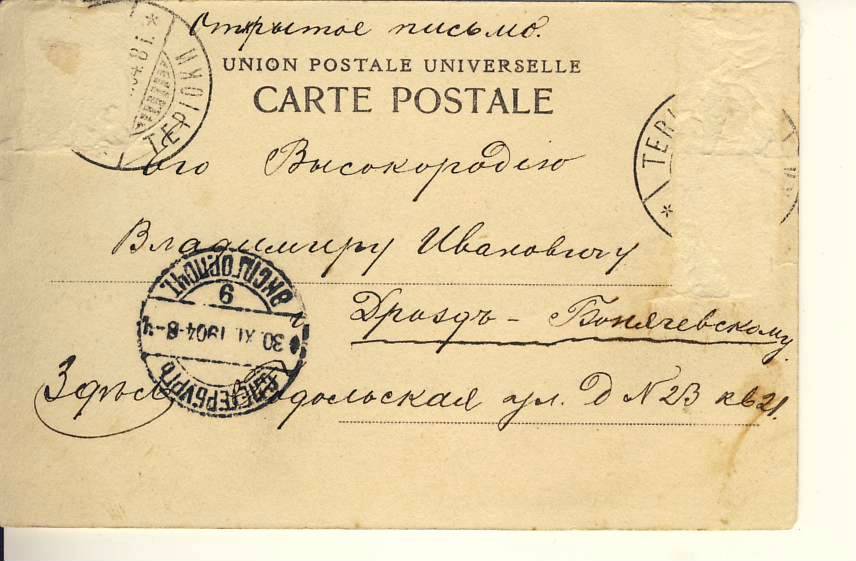 Открытое письмо.
UNION POSTALE UNIVERSELLE
CARTE POSTALE
ТЕРІОКИ
TERI
ого Высокородію
Владимиру Ивановичу
Дроздъ-Бонячевскому.
Здѣсь Подольская ул. Д N 23 кв 21.
С.ПЕТЕРБУРГЪ
30 XI 1904 8-ч
9
ЭКСП.ГОР.ПОЧТ.